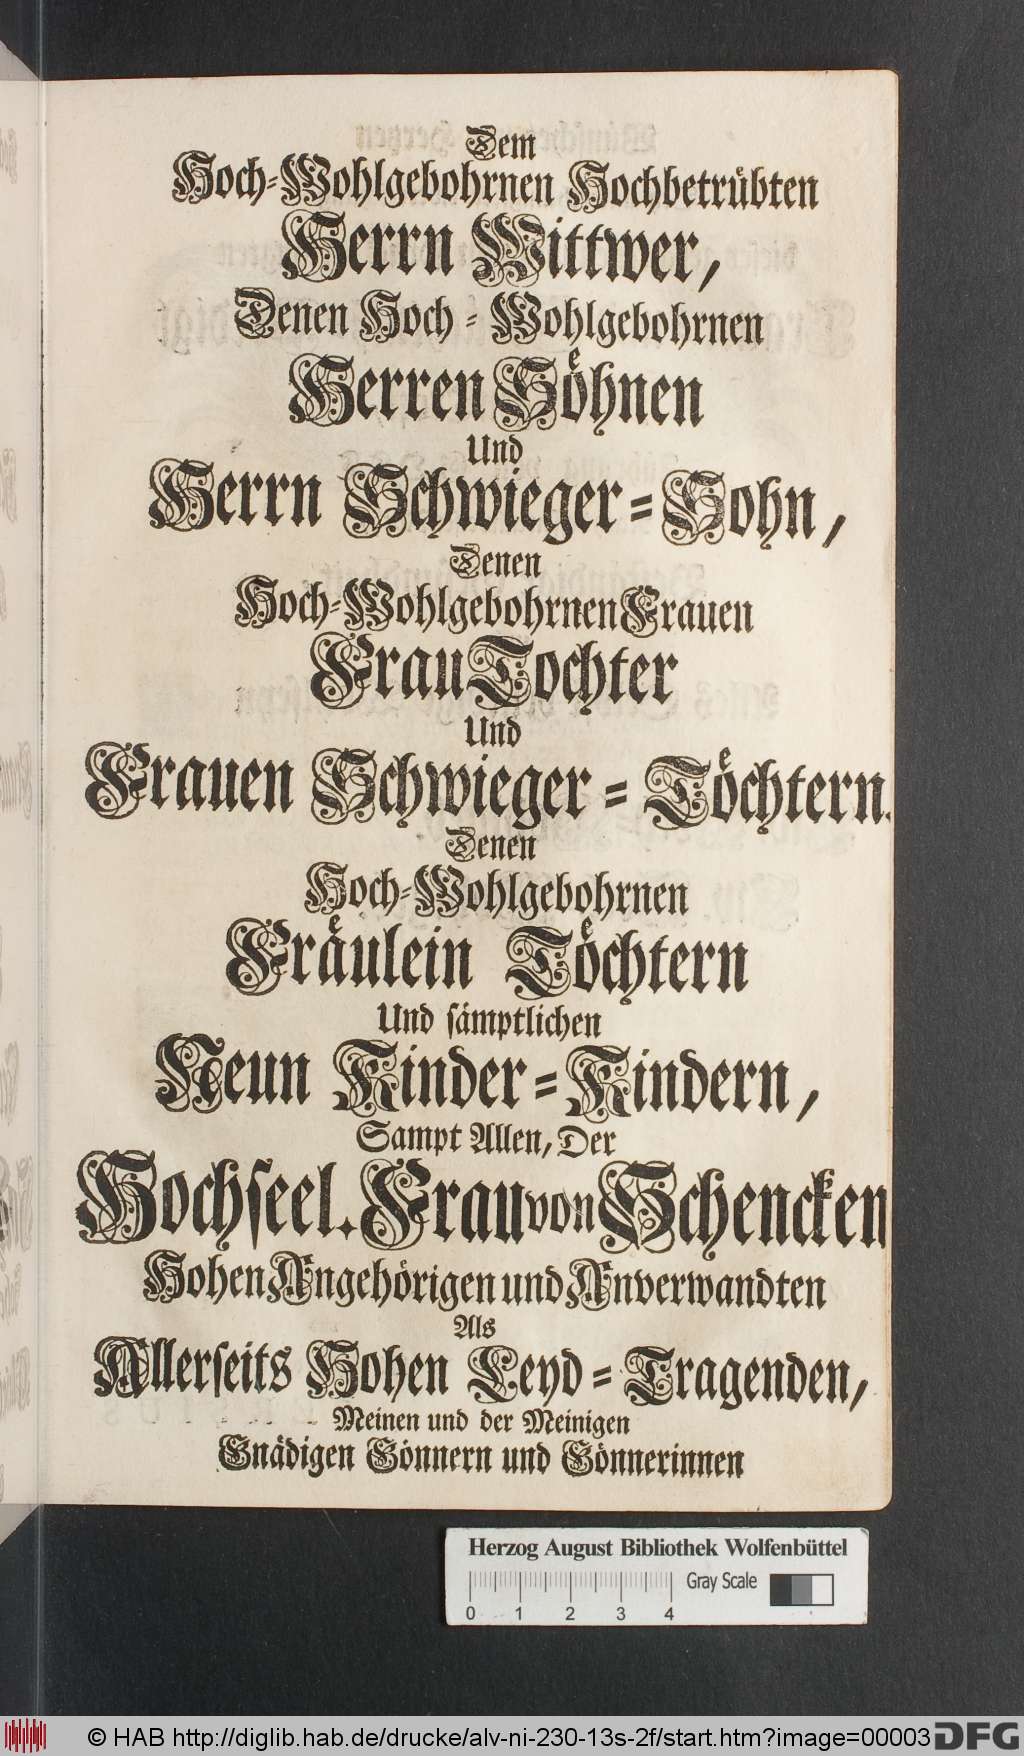 Dem
Hoch-Wohlgebohrnen Hochbetrübten
Herrn Wittwer,
Denen Hoch-Wohlgebohrnen
Herren Söhnen
Und
Herrn Schwieger-Sohn,
Denen
Hoch-Wohlgebohrnen Frauen
Frau Tochter
Und
Frauen Schwieger-Töchtern.
Denen
Hoch-Wohlgebohrnen
Fräulein Töchtern
Und sämptlichen
Neun Kinder-Kindern,
Sampt Allen, Der
Hochseel. Frau von Schencken
Hohen Angehörigen und Anverwandten
Als
Allerseits Hohen Leyd-Tragenden,
Meinen und der Meinigen
Gnädigen Gönnern und Gönnerinnen
Herzog August Bibliothek Wolfenbüttel
Gray Scale
0 1 2 3 4
© HAB http://diglib.hab.de/drucke/alv-ni-230-13s-2f/start.htm?image=00003 DFG